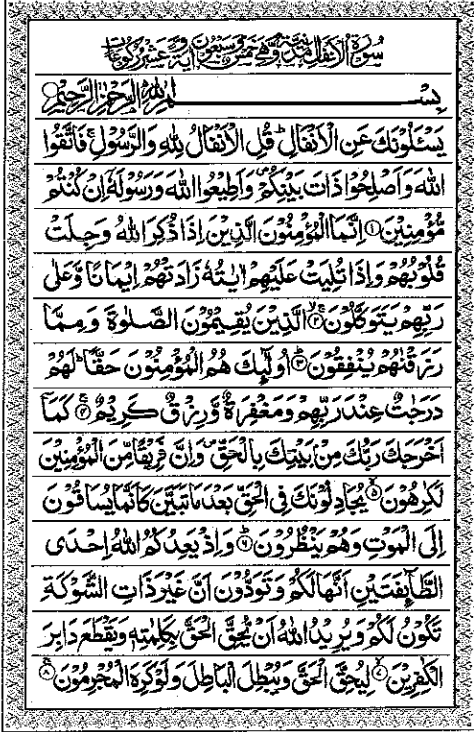 سُوْرَةُ الْاَنْفَالِ مَدَنِيَّةٌ وَّهِيَ خَمْسٌ وَّسَبْعُوْنَ اٰيَةً وَّعَشْرُ رُكُوْعَاتٍ
بِسْمِ اللّٰهِ الرَّحْمٰنِ الرَّحِيْمِ
يَسْـَٔلُوْنَكَ عَنِ الْاَنْفَالِ ؕ قُلِ الْاَنْفَالُ لِلّٰهِ وَالرَّسُوْلِ ۚ فَاتَّقُوا
اللّٰهَ وَاَصْلِحُوْا ذَاتَ بَيْنِكُمْ ۪ وَاَطِيْعُوا اللّٰهَ وَرَسُوْلَهٗۤ اِنْ كُنْتُمْ
مُّؤْمِنِيْنَ ۝۱ اِنَّمَا الْمُؤْمِنُوْنَ الَّذِيْنَ اِذَا ذُكِرَ اللّٰهُ وَجِلَتْ
قُلُوْبُهُمْ وَاِذَا تُلِيَتْ عَلَيْهِمْ اٰيٰتُهٗ زَادَتْهُمْ اِيْمَانًا وَّعَلٰى
رَبِّهِمْ يَتَوَكَّلُوْنَ ۝۲ۙ الَّذِيْنَ يُقِيْمُوْنَ الصَّلٰوةَ وَمِمَّا
رَزَقْنٰهُمْ يُنْفِقُوْنَ ۝۳ؕ اُولٰٓئِكَ هُمُ الْمُؤْمِنُوْنَ حَقًّا ؕ لَهُمْ
دَرَجٰتٌ عِنْدَ رَبِّهِمْ وَمَغْفِرَةٌ وَّرِزْقٌ كَرِيْمٌ ۝۴ۚ كَمَاۤ
اَخْرَجَكَ رَبُّكَ مِنْۢ بَيْتِكَ بِالْحَقِّ ۪ وَاِنَّ فَرِيْقًا مِّنَ الْمُؤْمِنِيْنَ
لَكٰرِهُوْنَ ۝۵ۙ يُجَادِلُوْنَكَ فِى الْحَقِّ بَعْدَ مَا تَبَيَّنَ كَاَنَّمَا يُسَاقُوْنَ
اِلَى الْمَوْتِ وَهُمْ يَنْظُرُوْنَ ۝۶ؕ وَاِذْ يَعِدُكُمُ اللّٰهُ اِحْدَى
الطَّآئِفَتَيْنِ اَنَّهَا لَكُمْ وَتَوَدُّوْنَ اَنَّ غَيْرَ ذَاتِ الشَّوْكَةِ
تَكُوْنُ لَكُمْ وَيُرِيْدُ اللّٰهُ اَنْ يُّحِقَّ الْحَقَّ بِكَلِمٰتِهٖ وَيَقْطَعَ دَابِرَ
الْكٰفِرِيْنَ ۝۷ۙ لِيُحِقَّ الْحَقَّ وَيُبْطِلَ الْبَاطِلَ وَلَوْ كَرِهَ الْمُجْرِمُوْنَ ۝۸ۚ